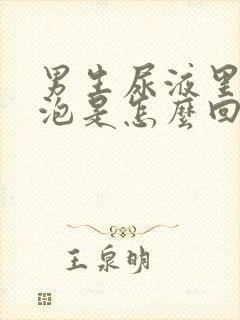 男生尿液里
泡是怎麼回
王泉明